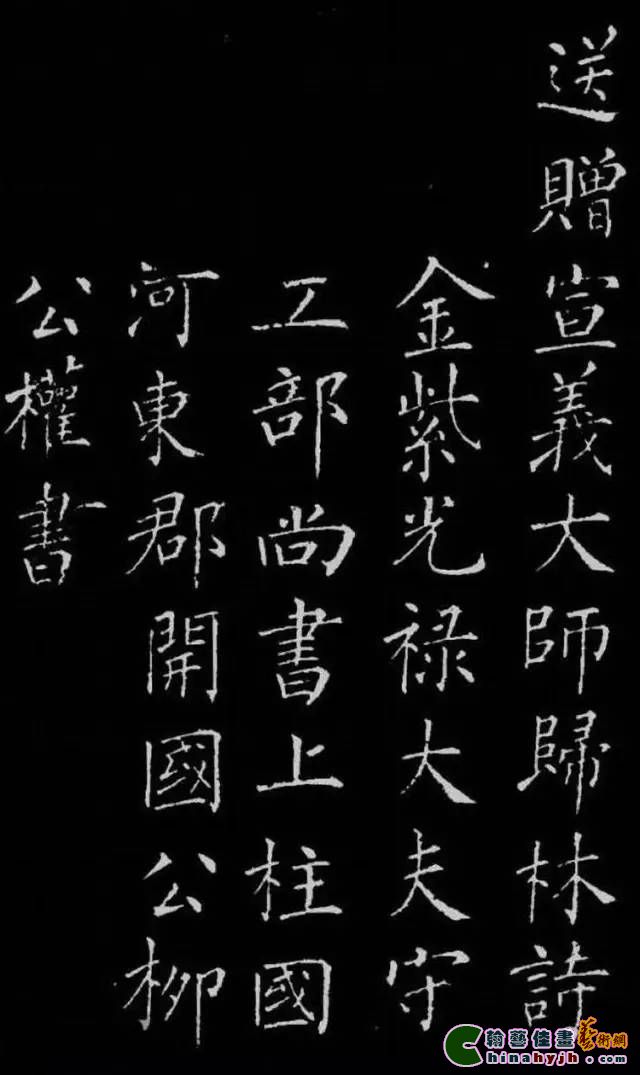 送贈宣義大師歸林詩
金紫光祿大夫守
工部尚書上柱國
河東郡開國公柳
公權書
翰藝佳畫藝術網
Chinahyjh.com